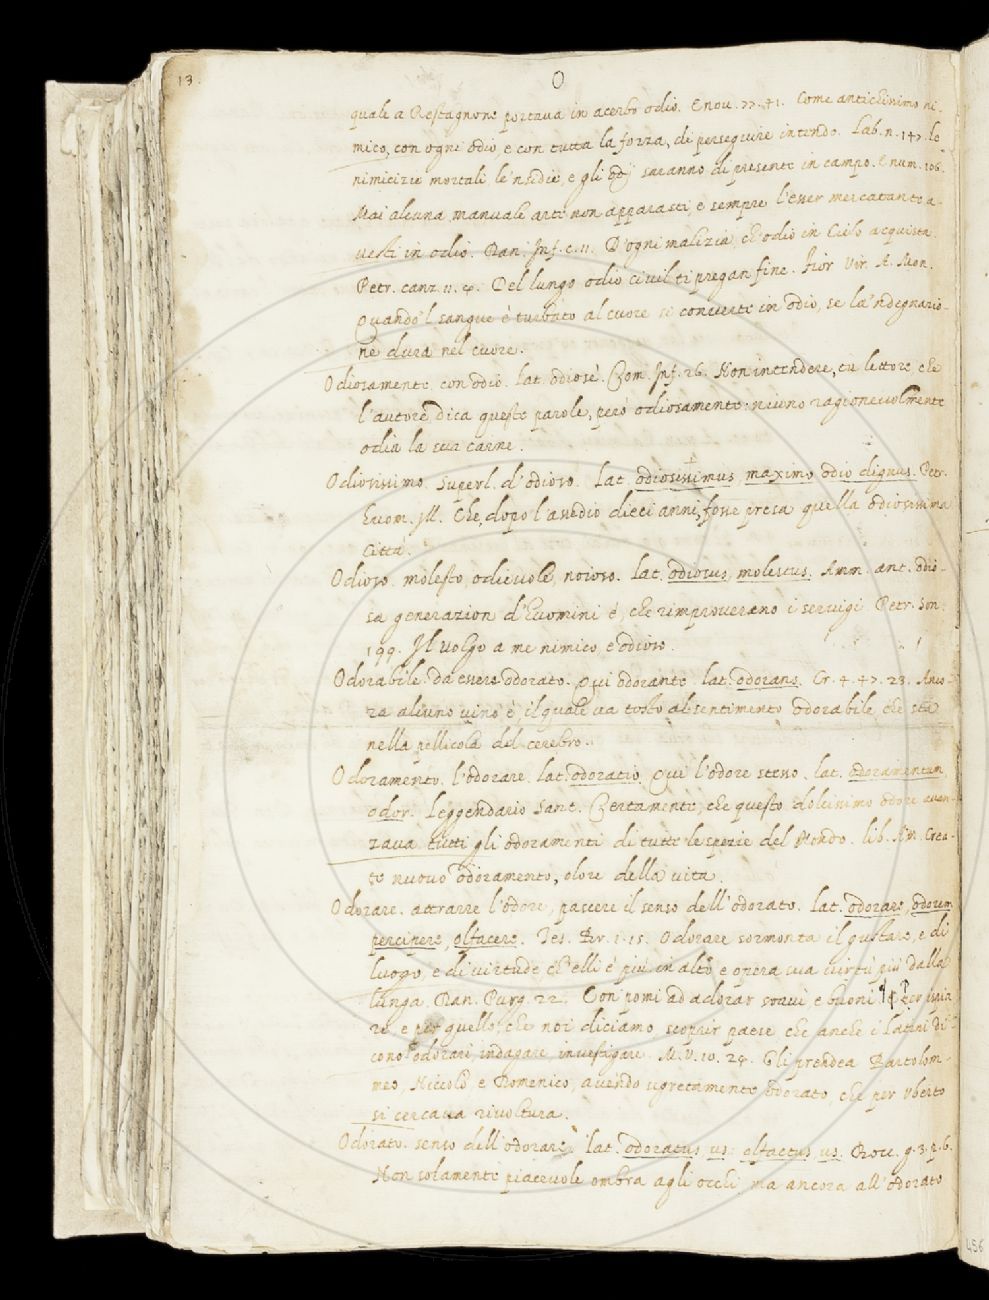 13.
O
quale a Restagnone portaua in acerbo odio. E nou. 77. 41. Come antichissimo ni-
mico, con ogni odio, e con tutta la forza, di perseguire intendo. Lab. n. 147. le
nimicizie mortali, le'nsidie, e gli odij saranno di presente in campo. E num. 106.
Mai alcuna manuale arte non apparasti, e sempre l'esser mercatante a-
uesti in odio. Dan. Inf. c. 11. D'ogni malizia, ch'odio in Cielo acquista.
Petr. canz. 11. 4. Del lungo odio ciuil ti pregan fine. Fior. Vir. A. Mon.
Quando'l sangue è turbato al cuore si conuerte in odio, se la'ndegnazio-
ne dura nel cuore.
Odiosamente. con odio. Lat. odiosè. Com. Inf. 26. Non intendere, tu lettore, che
l'autore dica queste parole, però odiosamente: niuno ragioneuolmente
odia la sua carne.
Odiosissimo. Superl. d'odioso. Lat. odiosissimus, maximo odio dignus. Petr.
Huom. Ill. Che, dopo l'assedio dieci anni, fosse presa quella odiosissima
Città.
Odioso. molesto, odieuole, noioso. Lat. odiosus, molestus. Amm. ant. Odio-
sa generazion d'huomini è, che rimprouerano i seruigi. Petr. Son.
199. Il uolgo a me nimico, e odioso.
Odorabile. da essere odorato. Qui odorante. lat. odorans. Cr. 4. 47. 23. Anco-
ra alcuno uino è, il quale ua tosto al sentimento odorabile, che sta
nella pellicola del cerebro.
Odoramento. l'odorare. lat. odoratio. Qui l'odore stesso. lat. odoramentum,
odor. Leggendario Sant. Certamente, che questo dolcissimo odore auan-
zaua tutti gli odoramenti di tutte le spezie del Mondo. lib. Am. Crea-
to nuouo odoramento, olore della uita.
Odorare. attrarre l'odore, pascere il senso dell'odorato. Lat. odorare, odorem
percipere, olfacere. Tes. Br. 1. 15. Odorare sormonta il gustare, e di
luogo, e di uirtude ch'elli è più in alto e opera sua uirtù più dalla
lunga. Dan. Purg. 22. Con pomi ad odorar soaui e buoni ¶ Per ispia
re, e per quello, che noi diciamo scoprir paese che anche i Latini di-
cono odorari, indagare, inuestigare. M. V. 10. 24. Gli prendea Bartolom-
meo, Niccolò e Domenico, auendo segretamente odorato, che per Uberto
si cercaua riuoltura.
Odorato. senso dell'odorare. Lat. odoratus, us: olfactus, us. Bocc. g. 3. p. 6.
Non solamente piaceuole ombra agli occhi, ma ancora all'odorato
456